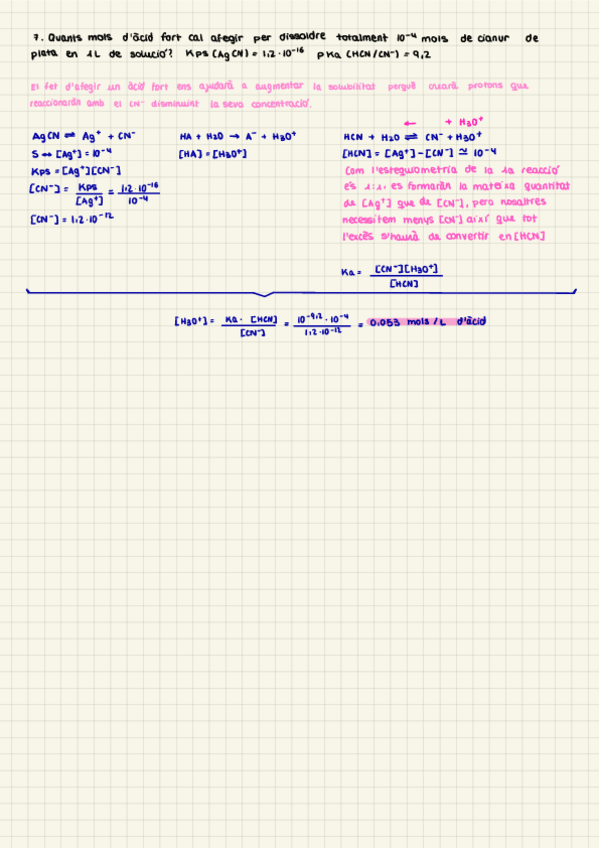 7. Quants mols d'àcid fort cal afegir per dissoldre totalment 10⁻⁴ mols de cianur de
plata en 1L de solució? Kps (AgCN) = 1,2·10⁻¹⁶ pKa (HCN/CN⁻) = 9,2
El fet d'afegir un àcid fort ens ajudarà a augmentar la solubilitat perquè crearà protons que
reaccionaràn amb el CN⁻ disminuint la seva concentració.
← + H₃O⁺
AgCN ⇌ Ag⁺ + CN⁻
S ↔ [Ag⁺] = 10⁻⁴
Kps = [Ag⁺][CN⁻]
[CN⁻] = Kps / [Ag⁺] = 1,2·10⁻¹⁶ / 10⁻⁴
[CN⁻] = 1,2·10⁻¹²
HA + H₂O → A⁻ + H₃O⁺
[HA] = [H₃O⁺]
HCN + H₂O ⇌ CN⁻ + H₃O⁺
[HCN] = [Ag⁺] - [CN⁻] ≃ 10⁻⁴
Com l'estequiometria de la 1a reacció
és 1:1, es formaràn la mateixa quantitat
de [Ag⁺] que de [CN⁻], pero nosaltres
necessitem menys [CN⁻] així que tot
l'excés s'haurà de convertir en [HCN]
Ka = [CN⁻][H₃O⁺] / [HCN]
[H₃O⁺] = Ka · [HCN] / [CN⁻] = 10⁻⁹'² · 10⁻⁴ / 1,2·10⁻¹² = 0,053 mols/L d'àcid